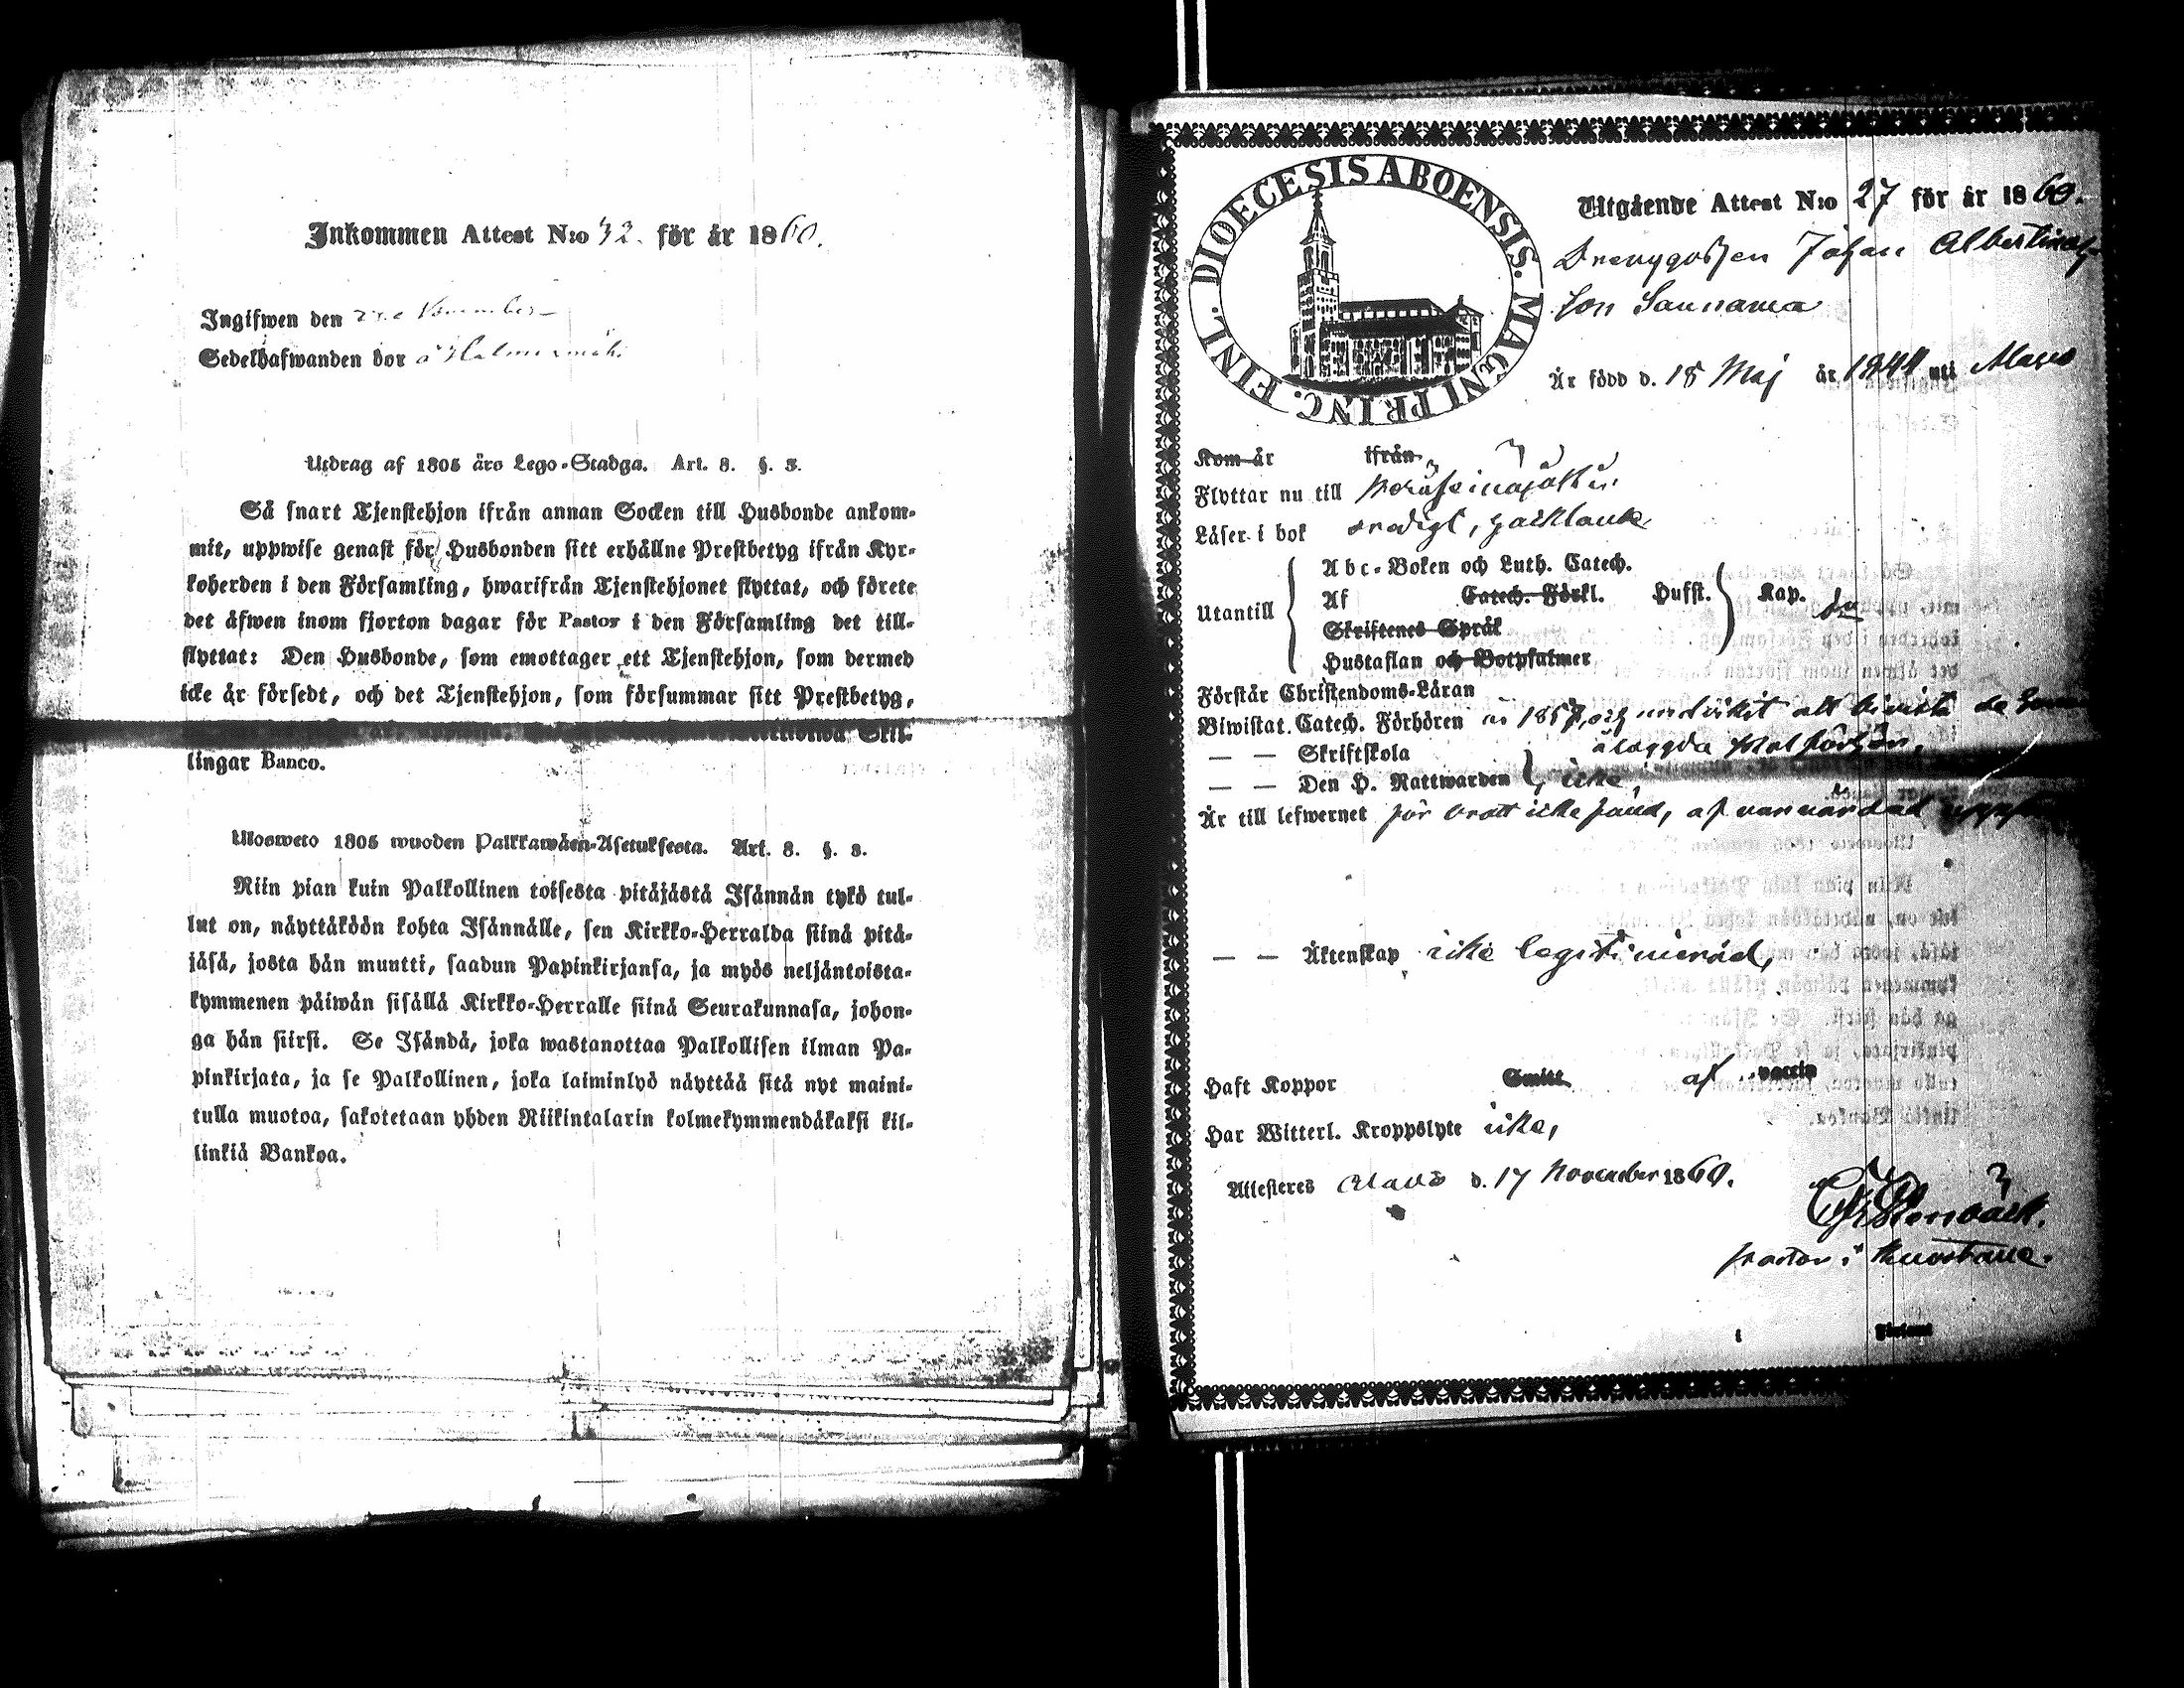 Inkommen Attest N:o 32. för år 1860.
Ingifwen den November
Sedelhafwanden bor å
Utdrag af 1805 års Lego-Stadga. Art. 8. §. 3.
Så snart Tjenstehjon ifrån annan Socken till Husbonde ankom-
mit, uppwise genast för Husbonden sitt erhållne Prestbetyg ifrån Kyr-
koherden i den Församling, hwarifrån Tjenstehjonet flyttat, och förete
det äfwen inom fjorton dagar för Pastor i den Församling det till-
flyttat: Den Husbonde, som emottager ett Tjenstehjon, som dermed
icke är försedt, och det Tjenstehjon, som försummar sitt Prestbetyg,
Skil-
lingar Banco.
Ulosweto 1805 wuoden Palkkawäen-Asetuksesta. Art. 8. §. 3.
Niin pian kuin Palkollinen toisesta pitäjästä Isännän tykö tul-
lut on, näyttäköön kohta Isännälle, sen Kirkko-Herralda siinä pitä-
jäsä, josta hän muutti, saadun Papinkirjansa, ja myös neljäntoista-
kymmenen päiwän sisällä Kirkko-Herralle siinä Seurakunnasa, johon-
ga hän siirsi. Se Isändä, joka wastanottaa Palkollisen ilman Pa-
pinkirjata, ja se Palkollinen, joka laiminlyö näyttää sitä nyt maini-
tulla muotoa, sakotetaan yhden Riikintalarin kolmekymmendäkaksi kil-
linkiä Bankoa.
DIOECESIS ABOENSIS. MAGNI PRINC. FINL.
Utgående Attest N:o 27 för år 1860.
Drenggossen Johan Albertina
son Sannama
Är född d. 18 Maj år 1841 uti Alavo
Kom år ifrån
Flyttar nu till
Läser i bok
Utantill
Abc-Boken och Luth. Catech.
Af Catech. Förkl. Hufst. Kap.
Skriftenes Språk
Hustaflan och Botpsalmer
Förstår Christendoms-Läran
Biwistat Catech. Förhören år 1857, och undvikit att bivista de
— — Skriftskola ålaggda
— — Den H. Nattwarden icke
Är till lefwernet för brott icke känd, af vanvårdad
— — Äktenskap icke legitimerad,
Haft Koppor Smitt af vaccin
Har Witterl. Kroppslyte icke,
Attesteres Alavo d. 17 November 1860.
pastor i Kuortane.